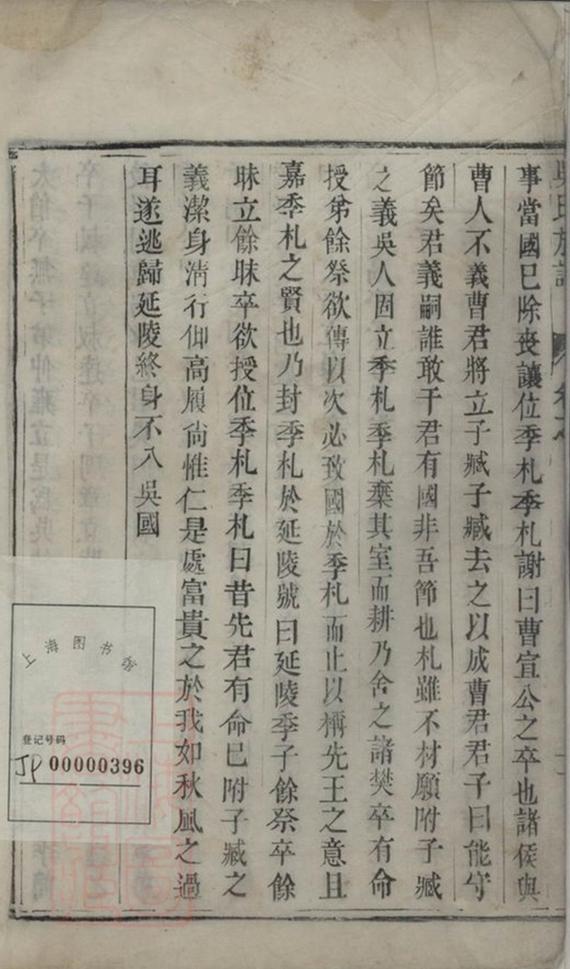 吳氏族譜
事當國已除喪讓位季札季札謝曰曹宣公之卒也諸侯與
曹人不義曹君將立子臧子臧去之以成曹君君子曰能守
節矣君義嗣誰敢干君有國非吾節也札雖不材願附子臧
之義吳人固立季札季札棄其室而耕乃舍之諸樊卒有命
授弟餘祭欲傳以次必致國於季札而止以稱先王之意且
嘉季札之賢也乃封季札於延陵號曰延陵季子餘祭卒餘
眜立餘眜卒欲授位季札季札曰昔先君有命已附子臧之
義潔身清行仰高履尚惟仁是處富貴之於我如秋風之過
耳遂逃歸延陵終身不入吳國
上海图书馆
登记号码
JP 00000396